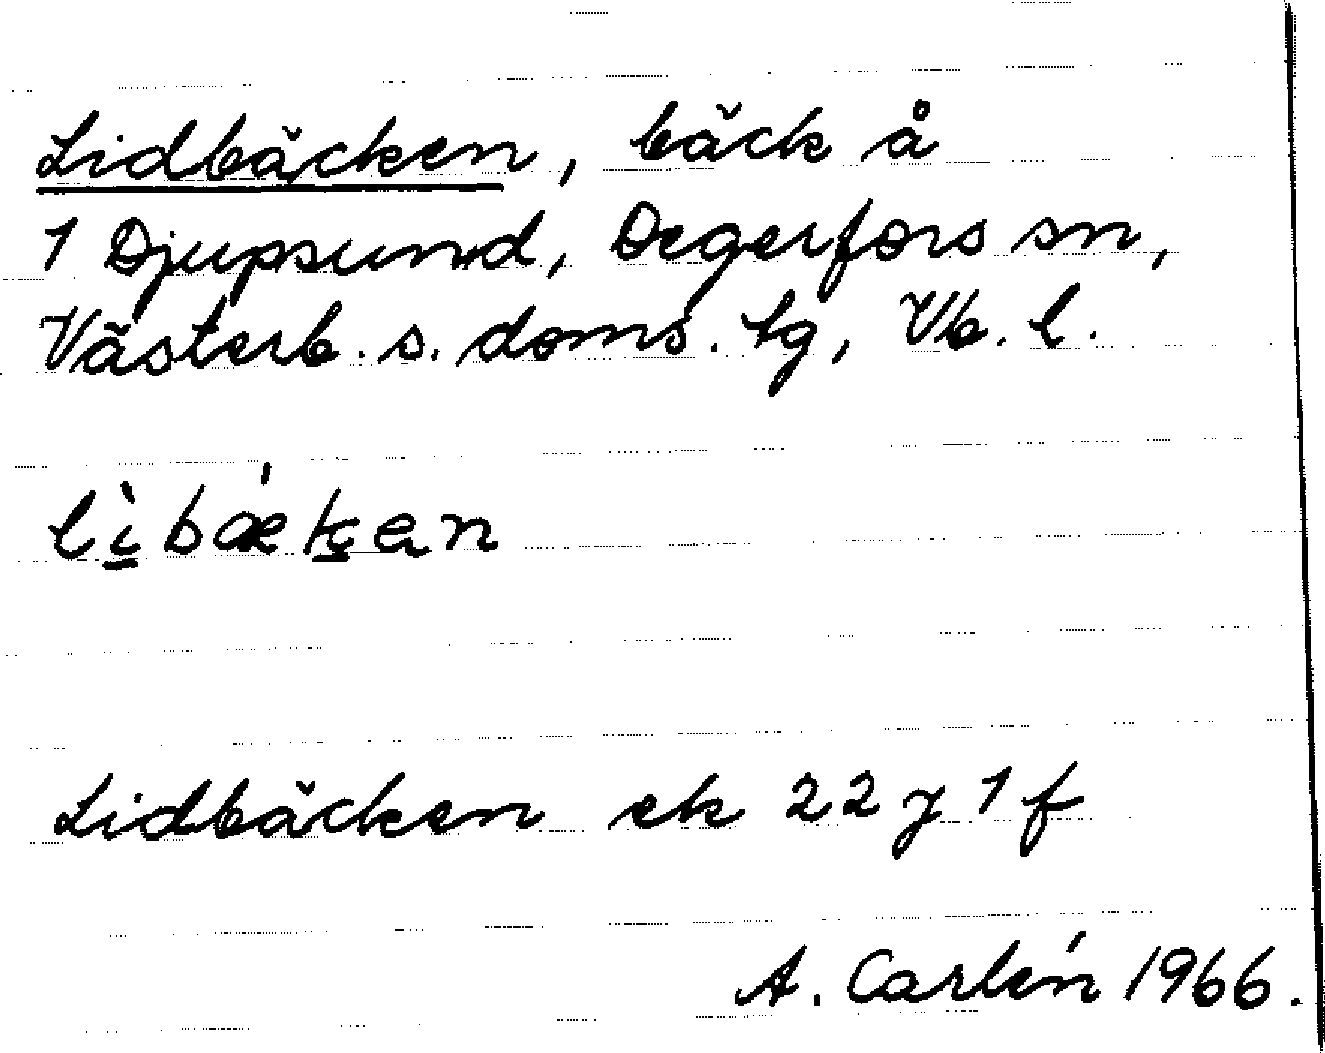 Lidbäcken, bäck å
1 Djupsund, Degerfors sn,
Västerb. s. doms. tg, Vb. l.
lì̱bǽkc̨en
Lidbäcken ek 22 J 1 f
A. Carlén 1966.